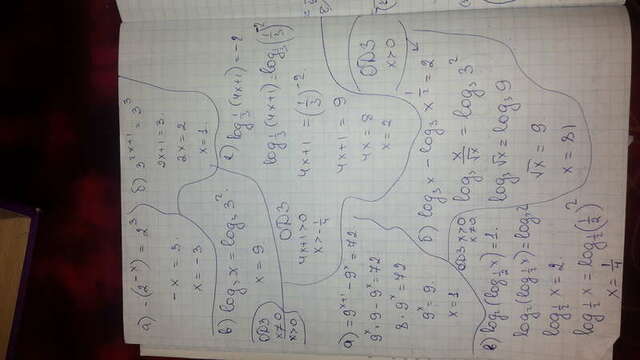 а) -(2^-x) = 2^3
-x = 3.
x = -3
б) 3^2x+1 = 3^3
2x+1 = 3.
2x = 2
x = 1.
в) log₃ x = log₃ 3².
x = 9
ОДЗ
x≠0
x>0
г) log 1/3 (4x+1) = -2
log 1/3 (4x+1) = log 1/3 (1/3)^-2
4x+1 = (1/3)^-2
4x+1 = 9
4x = 8
x = 2
ОДЗ
4x+1>0
x>-1/4
= 9^x+1 - 9^x = 72.
9^x · 9 - 9^x = 72
8 · 9^x = 72
9^x = 9.
x = 1
б) log₃ x - log₃ x^1/2 = 2
log₃ x/√x = log₃ 3²
log₃ √x = log₃ 9
√x = 9
x = 81
ОДЗ
x>0
ОДЗ x>0
x≠0
в) log₂ (log 1/2 x) = 1.
log₂ (log 1/2 x) = log₂ 2
log 1/2 x = 2.
log 1/2 x = log 1/2 (1/2)²
x = 1/4